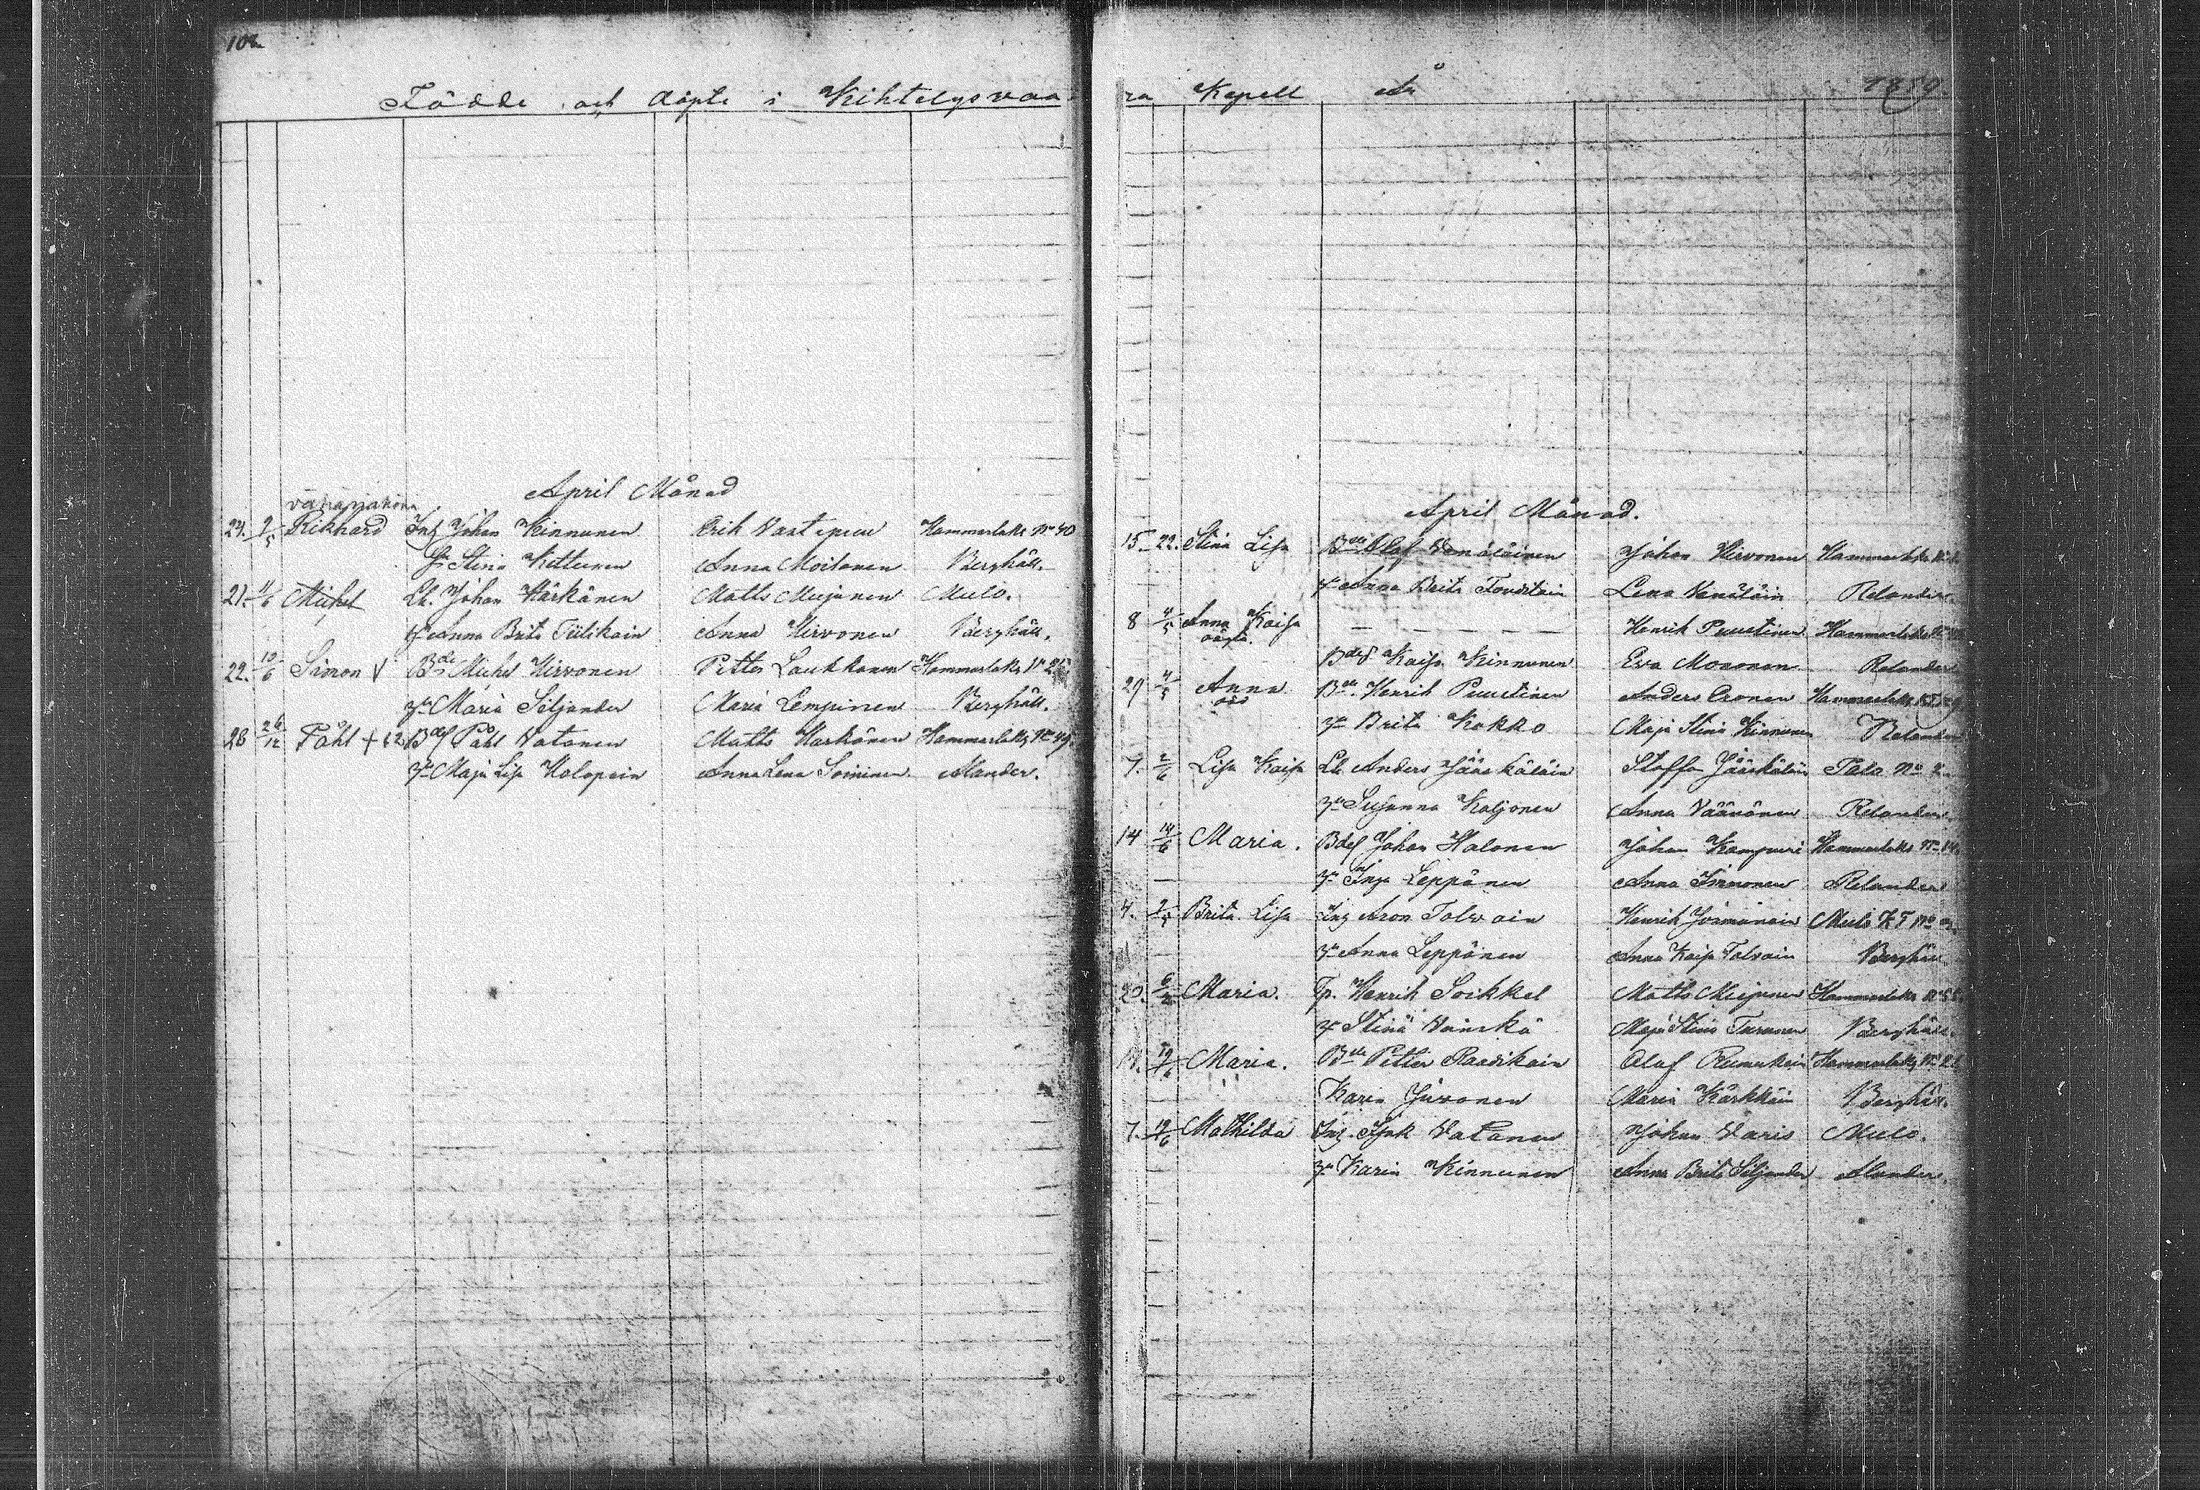 102
Födde och döpte i Kihtelysvaa
April Månad
23. 9/5 Rikhard Inh Johan Kinnunen Erik Vartipuu Hammerlaks No 40
Stina Kettunen Anna Moilanen Berghäll.
21. 11/6 Michel Lb. Johan Härkänen Matts Meijanen Mulo.
h Anna Brita Tiilikain Anna Hirvonen Berghäll.
22. 12/6 Simon V Bde Michel Hirvonen Petter Laukkanen Hammerlaks No
hu Maria Siljander Maria Lempinen Berghäll.
28 26/12 Påhl + 62 Bdes Påhl Vatanen Matts Harkänen Hammerlaks No 49
hu Maja Lisa Holopain Anna Lena Soininen Alander.
ra Kapell År 1859
April Månad.
15. 22. Stina Lisa Bde Olof Venäläinen Johan Hirvonen Hammerlaks
hu Anna Brita Lena Venäläin Relander.
8 4/5 Anna Kaisa oägta. — — — — Henrik Puustinen Hammerlaks
Bdes Kaisa Kinnunen Eva Mononen Relander
29 4/5 Anna Bde. Henrik Puustinen Anders Oronen Hammerlaks
hu Brita Kokko Maja Stina Kinnunen Relander
7. 2/6 Lisa Kaisa Lb Anders Jääskäläin Staffa Jääskäläin No 2
hu Susanna Koljonen Anna Väänänen Relander
14 14/6 Maria. Bdes Johan Halonen Johan Hammerlaks No 14
hu Inga Leppänen Anna Immonen Relander
4. 2/5 Brita Lisa Inh Aron Tolvain Henrik Jormanain Mulo
hu Anna Leppänen Anna Kaisa Tolvain Berghäll
20. Maria. Tp. Henrik Soikkel Matts Meijanen Hammerlaks No 55
hu Stina Vainikä Maja Stina Turunen Berghäll.
19/6 Maria. Bde Petter Raadikain Olof Hammerlaks No
Karin Juvonen Maria Kärkkäin Berghäll.
7. 19/6 Mathilda Inh. Isak Vatanen Johan Varis Mulo.
hu Karin Kinnunen Anna Brita Siljander Alander.